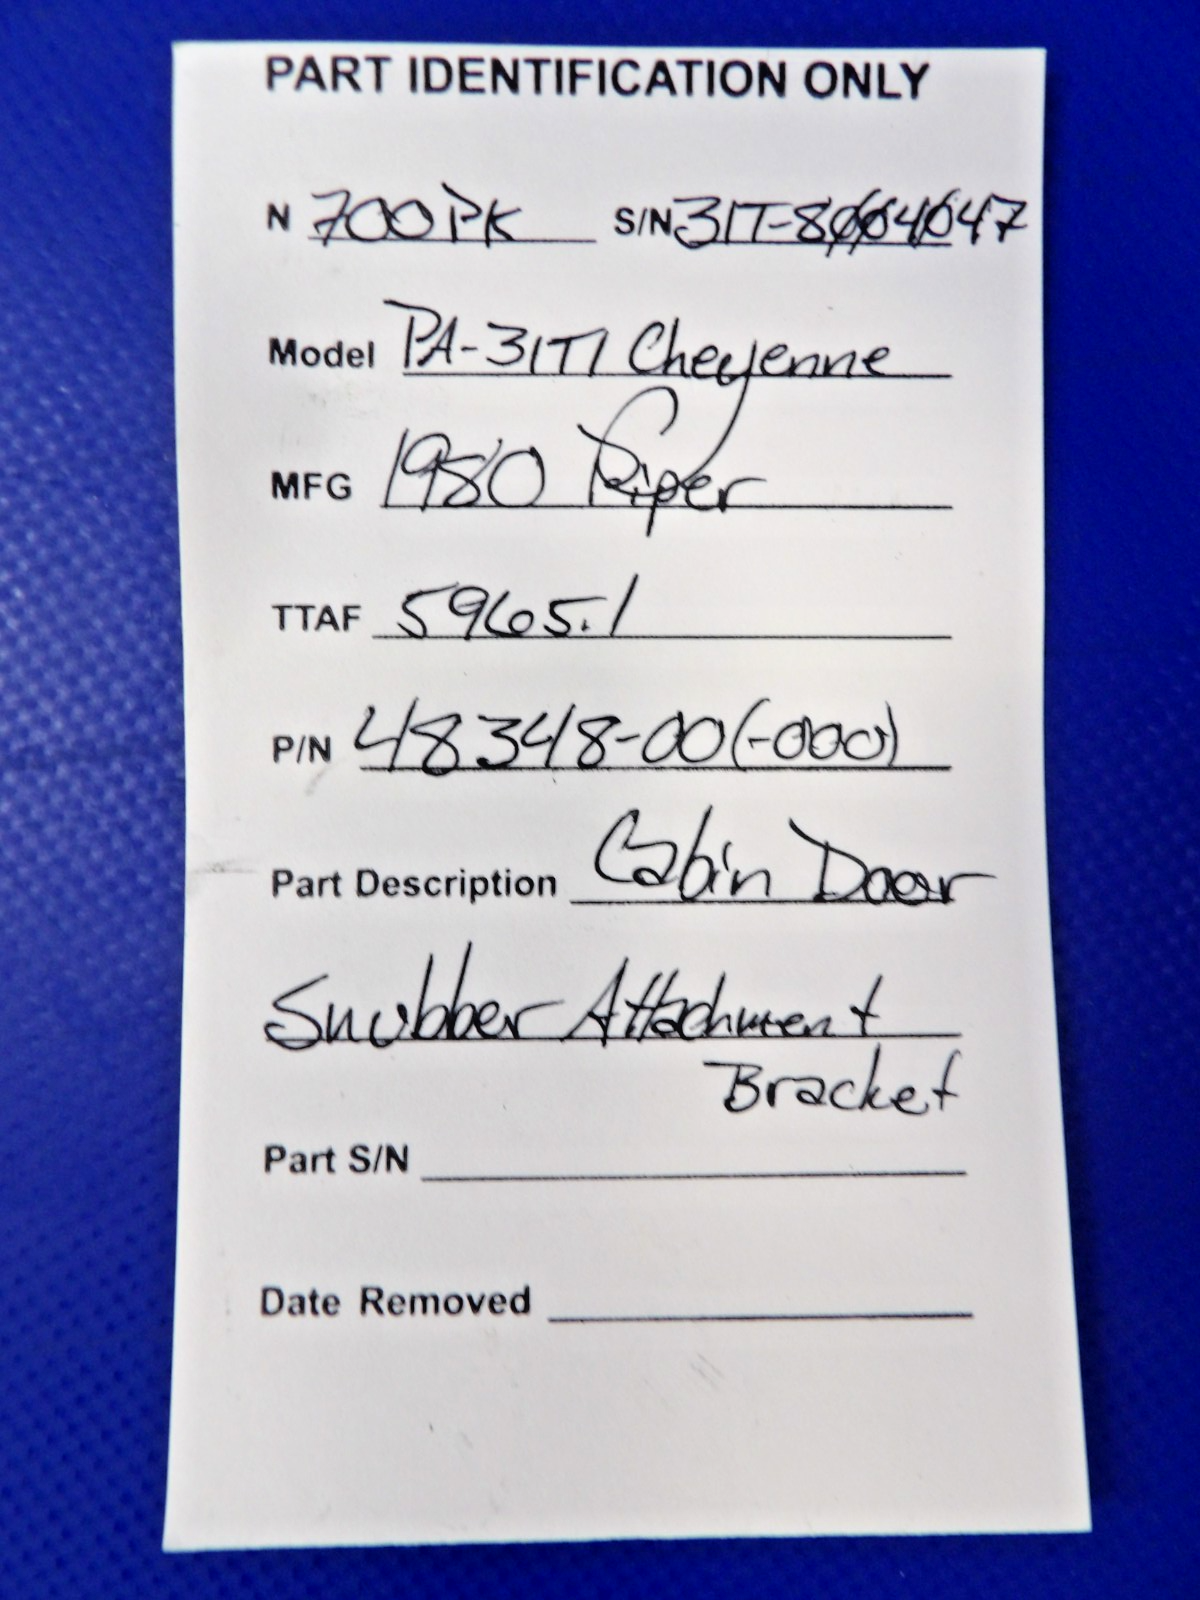 PART IDENTIFICATION ONLY
N 700PK S/N 31T-8004047
Model PA-31T1 Cheyenne
MFG 1980 Piper
TTAF 5965.1
P/N 48348-00(-000)
Part Description Cabin Door
Snubber Attachment
Bracket
Part S/N
Date Removed